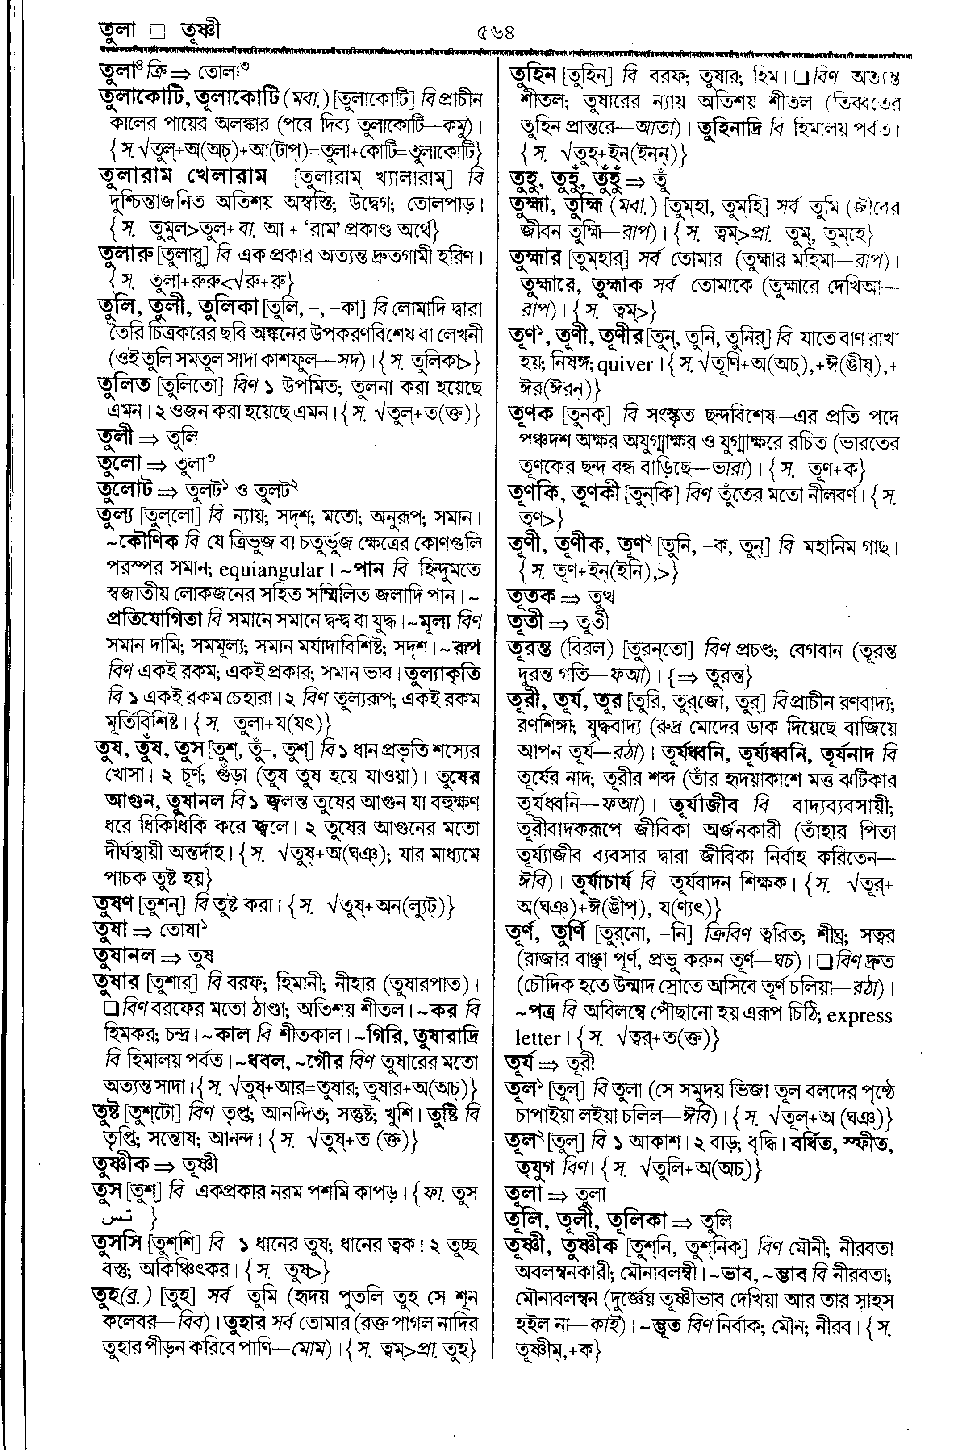 তুলা □ তূষ্ণী
৫৬৪
তুলা⁴ ক্রি ⇒ তোলা³
তুলাকোটি, তুলাকোটি (মবা.) [তুলাকোটি] বি প্রাচীন
কালের পায়ের অলঙ্কার (পরে দিব্য তুলাকোটি—কমু)।
{স. √তুল্+অ(অচ্)+আ(টাপ্)=তুলা+কোটি=তুলাকোটি}
তুলারাম খেলারাম [তুলারাম্ খ্যালারাম্] বি
দুশ্চিন্তাজনিত অতিশয় অস্বস্তি; উদ্বেগ; তোলপাড়।
{স. তুমুল>তুল+বা. আ + ‘রাম’ প্রকাণ্ড অর্থে}
তুলারু [তুলারু] বি এক প্রকার অত্যন্ত দ্রুতগামী হরিণ।
{স. তুলা+রুরু<√রু+রু}
তুলি, তুলী, তুলিকা [তুলি, –, –কা] বি লোমাদি দ্বারা
তৈরি চিত্রকরের ছবি অঙ্কনের উপকরণবিশেষ বা লেখনী
(ওই তুলি সমতুল সাদা কাশফুল—সদ)। {স. তূলিকা>}
তুলিত [তুলিতো] বিণ ১ উপমিত; তুলনা করা হয়েছে
এমন। ২ ওজন করা হয়েছে এমন। {স. √তুল্+ত(ক্ত)}
তুলী ⇒ তুলি
তুলো ⇒ তুলা³
তুলোট ⇒ তুলট¹ ও তুলট²
তুল্য [তুল্‌লো] বি ন্যায়; সদৃশ; মতো; অনুরূপ; সমান।
~কৌণিক বি যে ত্রিভুজ বা চতুর্ভুজ ক্ষেত্রের কোণগুলি
পরস্পর সমান; equiangular। ~পান বি হিন্দুমতে
স্বজাতীয় লোকজনের সহিত সম্মিলিত জলাদি পান। ~
প্রতিযোগিতা বি সমানে সমানে দ্বন্দ্ব বা যুদ্ধ। ~মূল্য বিণ
সমান দামি; সমমূল্য; সমান মর্যাদাবিশিষ্ট; সদৃশ। ~রূপ
বিণ একই রকম; একই প্রকার; সমান ভাব। তুল্যাকৃতি
বি ১ একই রকম চেহারা। ২ বিণ তুল্যরূপ; একই রকম
মূর্তিবিশিষ্ট। {স. তুলা+য(যৎ)}
তুষ, তুঁষ, তুস [তুশ্, তুঁ-, তুশ্] বি ১ ধান প্রভৃতি শস্যের
খোসা। ২ চূর্ণ; গুঁড়া (তুষ তুষ হয়ে যাওয়া)। তুষের
আগুন, তুষানল বি ১ জ্বলন্ত তুষের আগুন যা বহুক্ষণ
ধরে ধিকিধিকি করে জ্বলে। ২ তুষের আগুনের মতো
দীর্ঘস্থায়ী অন্তর্দাহ। {স. √তুষ্+অ(ঘঞ্); যার মাধ্যমে
পাচক তুষ্ট হয়}
তুষণ [তুশন্] বি তুষ্ট করা। {স. √তুষ+অন(ল্যুট)}
তুষা ⇒ তোষা¹
তুষানল ⇒ তুষ
তুষার [তুশার] বি বরফ; হিমানী; নীহার (তুষারপাত)।
□ বিণ বরফের মতো ঠাণ্ডা; অতিশয় শীতল। ~কর বি
হিমকর; চন্দ্র। ~কাল বি শীতকাল। ~গিরি, তুষারাদ্রি
বি হিমালয় পর্বত। ~ধবল, ~গৌর বিণ তুষারের মতো
অত্যন্ত সাদা। {স. √তুষ্+আর=তুষার; তুষার+অ(অচ্)}
তুষ্ট [তুশ্‌টো] বিণ তৃপ্ত; আনন্দিত; সন্তুষ্ট; খুশি। তুষ্টি বি
তৃপ্তি; সন্তোষ; আনন্দ। {স. √তুষ্+ত (ক্ত)}
তুষ্ণীক ⇒ তূষ্ণী
তুস [তুশ্] বি একপ্রকার নরম পশমি কাপড়। {ফা. তুস
تس }
তুসসি [তুশ্‌শি] বি ১ ধানের তুষ; ধানের ত্বক। ২ তুচ্ছ
বস্তু; অকিঞ্চিৎকর। {স. তুষ>}
তুহ (ব্র.) [তুহ] সর্ব তুমি (হৃদয় পুতলি তুহ সে শূন
কলেবর—বিব)। তুহার সর্ব তোমার (রক্ত পাগল নাদির
তুহার পীড়ন করিবে পাণি—মোম)। {স. ত্বম্>প্রা. তুহ}
তুহিন [তুহিন্] বি বরফ; তুষার; হিম। □ বিণ অত্যন্ত
শীতল; তুষারের ন্যায় অতিশয় শীতল (তিব্বতের
তুহিন প্রান্তরে—আতা)। তুহিনাদ্রি বি হিমালয় পর্বত।
{স. √তুহ+ইন(ইনন্)}
তুহু, তুহুঁ, তুঁহুঁ ⇒ তুঁ
তুহ্মা, তুহ্মি (মবা.) [তুম্‌হা, তুমহি] সর্ব তুমি (জীবের
জীবন তুহ্মি—রাপ)। {স. ত্বম্>প্রা. তুম্, তুম্‌হে}
তুহ্মার [তুম্‌হার্] সর্ব তোমার (তুহ্মার মহিমা—রাপ)।
তুহ্মারে, তুহ্মাক সর্ব তোমাকে (তুহ্মারে দেখিআ—
রাপ)। {স. ত্বম্>}
তূণ¹, তূণী, তূণীর [তুন্, তুনি, তুনির্] বি যাতে বাণ রাখা
হয়; নিষঙ্গ; quiver। {স. √তূণি+অ(অচ্),+ঈ(ঙীষ্),+
ঈর(ঈরন্)}
তূণক [তুনক্] বি সংস্কৃত ছন্দবিশেষ—এর প্রতি পদে
পঞ্চদশ অক্ষর অযুগ্মাক্ষর ও যুগ্মাক্ষরে রচিত (ভারতের
তূণকের ছন্দ বন্ধ বাড়িছে—ভারা)। {স. তূণ+ক}
তূণকি, তূণকী [তুন্‌কি] বিণ তুঁতের মতো নীলবর্ণ। {স.
তূণ>}
তূণী, তূণীক, তূণ² [তুনি, –ক, তুন্] বি মহানিম গাছ।
{স. তূণ+ইন্(ইনি),>}
তূতক ⇒ তুত্থ
তূতী ⇒ তুতী
তূরন্ত (বিরল) [তুরন্‌তো] বিণ প্রচণ্ড; বেগবান (তূরন্ত
দুরন্ত গতি—ফআ)। {⇒ তুরন্ত}
তূরী, তূর্য, তূর [তুরি, তুর্‌জো, তুর্] বি প্রাচীন রণবাদ্য;
রণশিঙ্গা; যুদ্ধবাদ্য (রুদ্র মোদের ডাক দিয়েছে বাজিয়ে
আপন তূর্য—রঠা)। তূর্যধ্বনি, তূর্য্যধ্বনি, তূর্যনাদ বি
তূর্যের নাদ; তূরীর শব্দ (তাঁর হৃদয়াকাশে মত্ত ঝটিকার
তূর্যধ্বনি—ফআ)। তূর্যাজীব বি বাদ্যব্যবসায়ী;
তূরীবাদকরূপে জীবিকা অর্জনকারী (তাঁহার পিতা
তূর্য্যাজীব ব্যবসার দ্বারা জীবিকা নির্বাহ করিতেন—
ঈবি)। তূর্যাচার্য বি তূর্যবাদন শিক্ষক। {স. √তূর্+
অ(ঘঞ্)+ঈ(ঙীপ্), য(ণ্যৎ)}
তূর্ণ, তূর্ণি [তুর্‌নো, –নি] ক্রিবিণ ত্বরিত; শীঘ্র; সত্বর
(রাজার বাঞ্ছা পূর্ণ, প্রভু করুন তূর্ণ—ঘচ)। □ বিণ দ্রুত
(চৌদিক হতে উন্মাদ স্রোতে আসিবে তূর্ণ চলিয়া—রঠা)।
~পত্র বি অবিলম্বে পৌঁছানো হয় এরূপ চিঠি; express
letter। {স. √ত্বর্+ত(ক্ত)}
তূর্য ⇒ তূরী
তূল¹ [তুল্] বি তুলা (সে সমুদয় ভিজা তূল বলদের পৃষ্ঠে
চাপাইয়া লইয়া চলিল—ঈবি)। {স. √তূল্+অ (ঘঞ)}
তূল² [তুল্] বি ১ আকাশ। ২ বাড়; বৃদ্ধি। বর্ধিত, স্ফীত,
ত্যুগ বিণ। {স. √তূলি+অ(অচ্)}
তূলা ⇒ তুলা
তূলি, তূলী, তূলিকা ⇒ তুলি
তূষ্ণী, তুষ্ণীক [তুশ্‌নি, তুশ্‌নিক] বিণ মৌনী; নীরবতা
অবলম্বনকারী; মৌনাবলম্বী। ~ভাব, ~ম্ভাব বি নীরবতা;
মৌনাবলম্বন (দুর্জ্ঞেয় তূষ্ণীভাব দেখিয়া আর তার সাহস
হইল না—কাই)। ~ম্ভূত বিণ নির্বাক; মৌন; নীরব। {স.
তূষ্ণীম্,+ক}